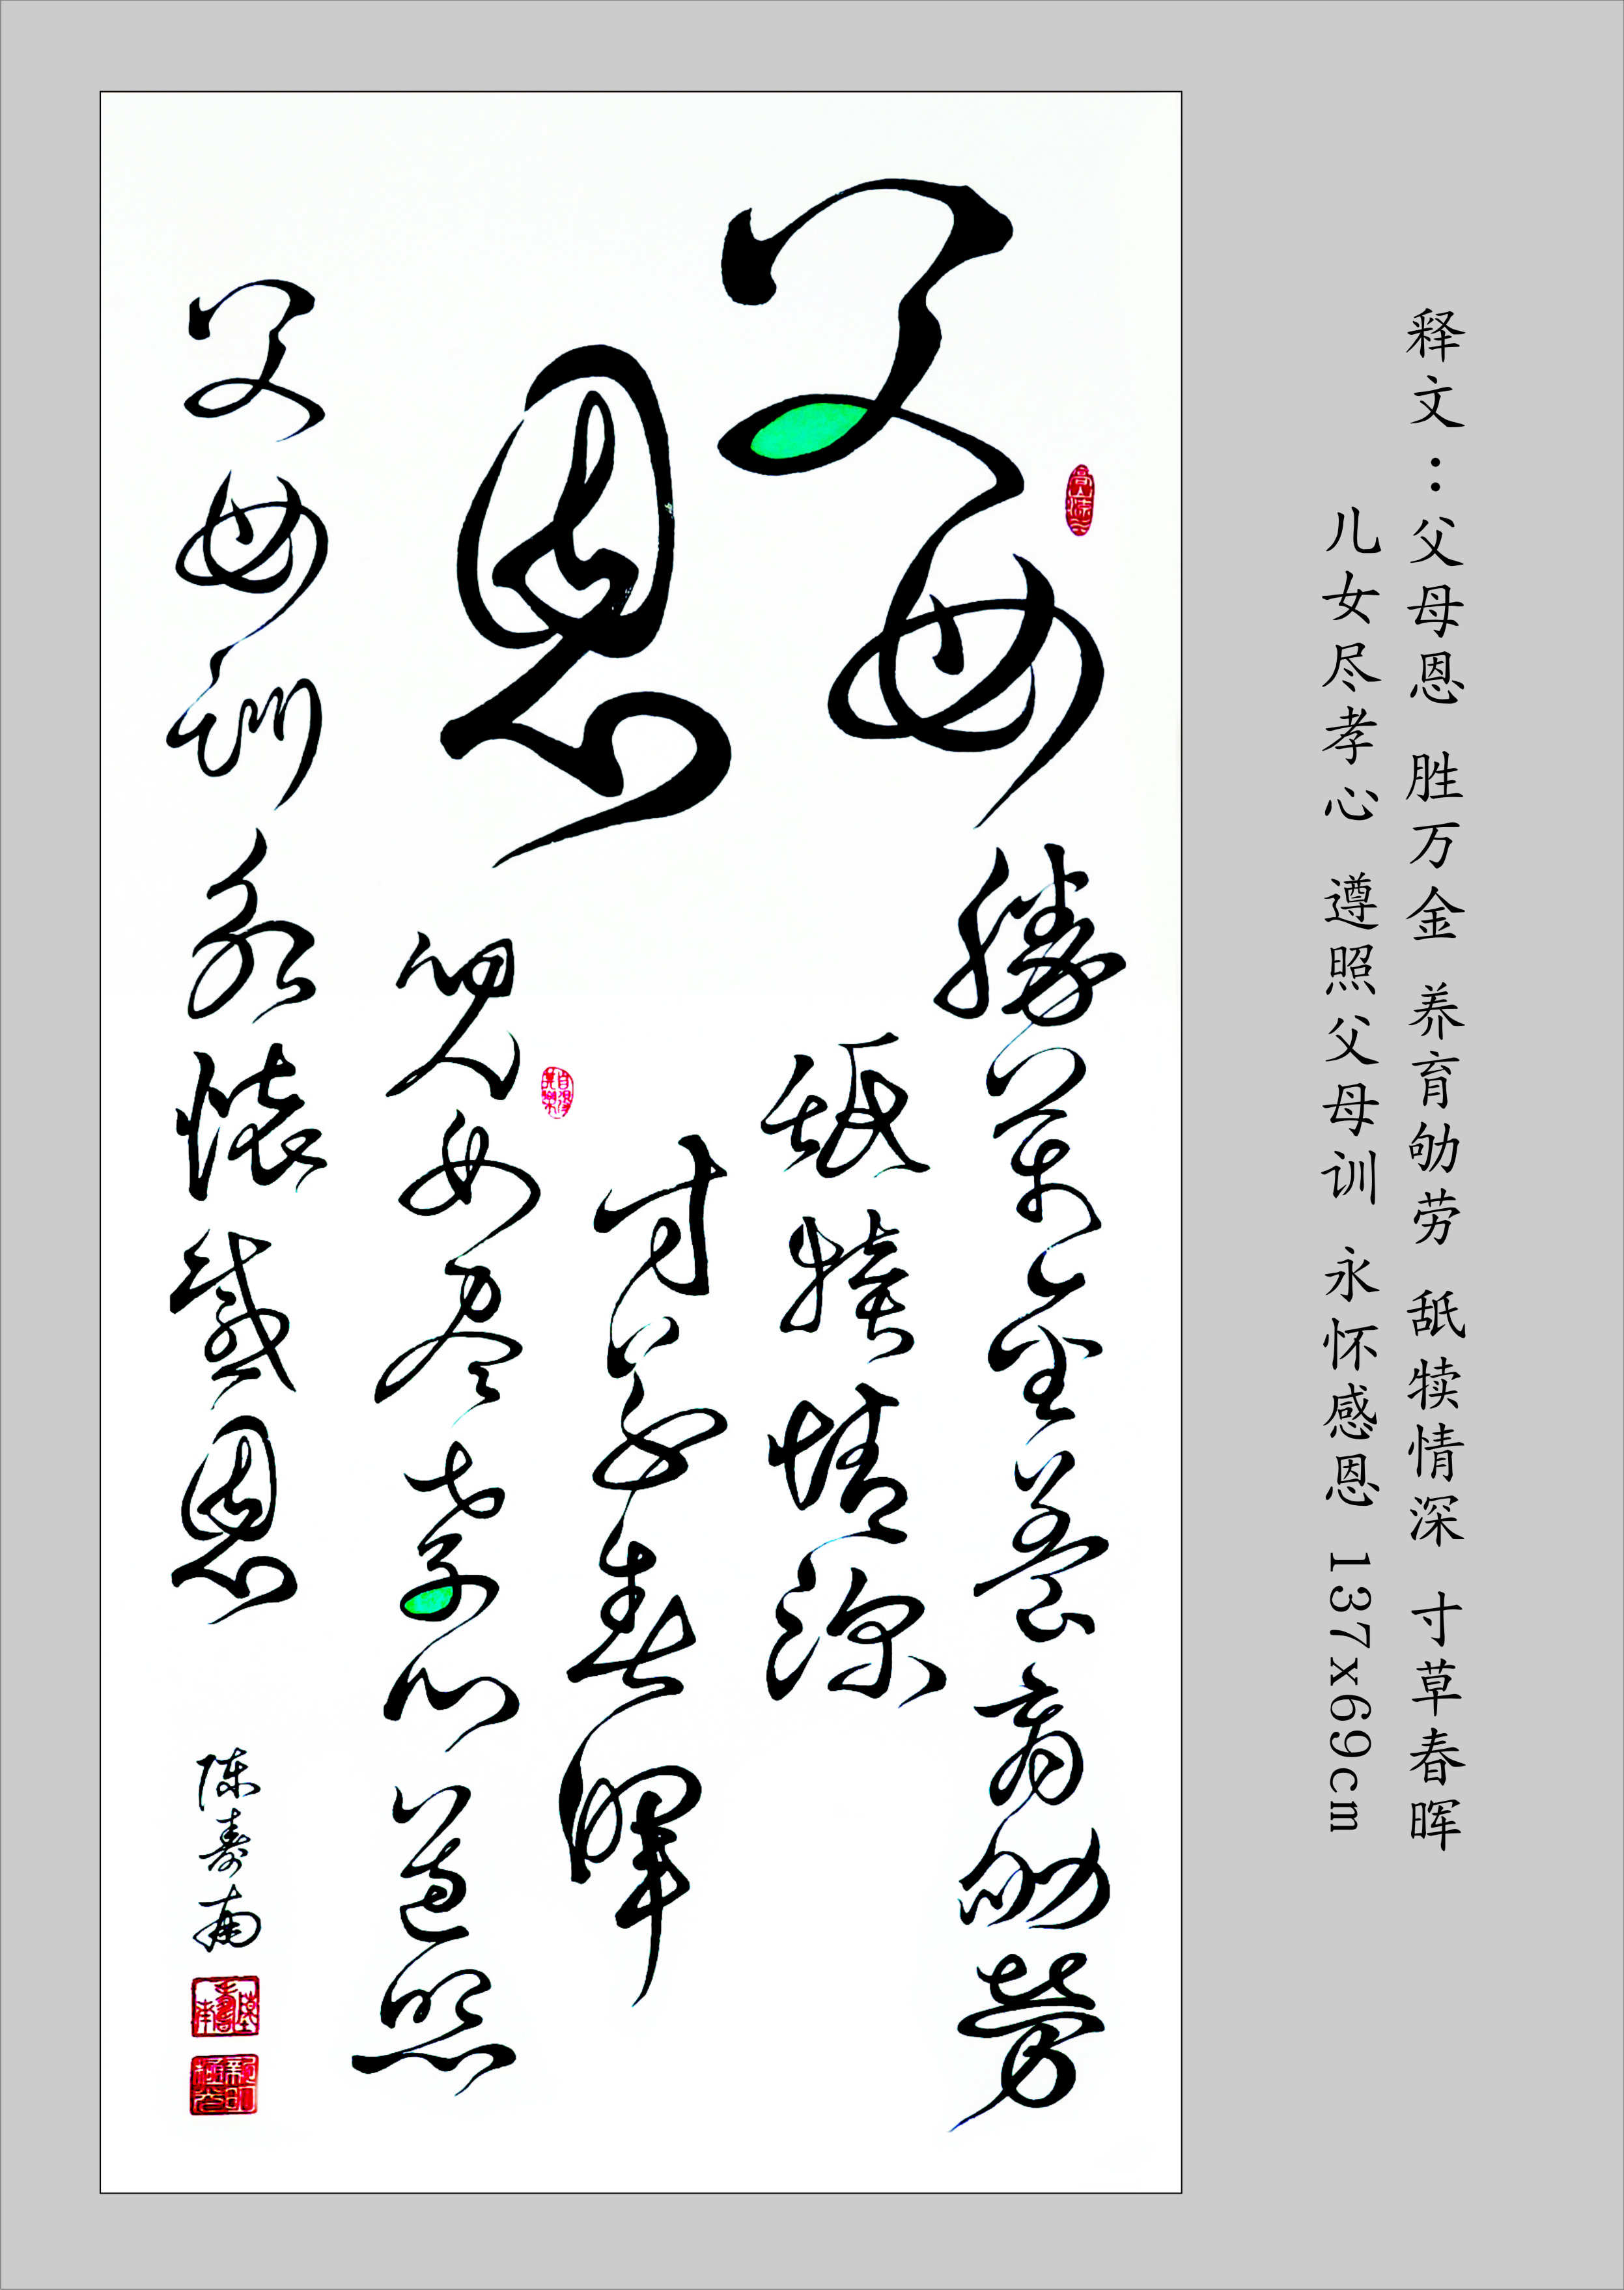 释文：父母恩 胜万金 养育劬劳 舐犊情深 寸草春晖
儿女尽孝心 遵照父母训 永怀感恩 137x69cm
父母
勝萬金養育劬劳
舐犊情深
恩
寸草春暉
兒女尽孝心遵照
父母训永懷感恩
陈寿南